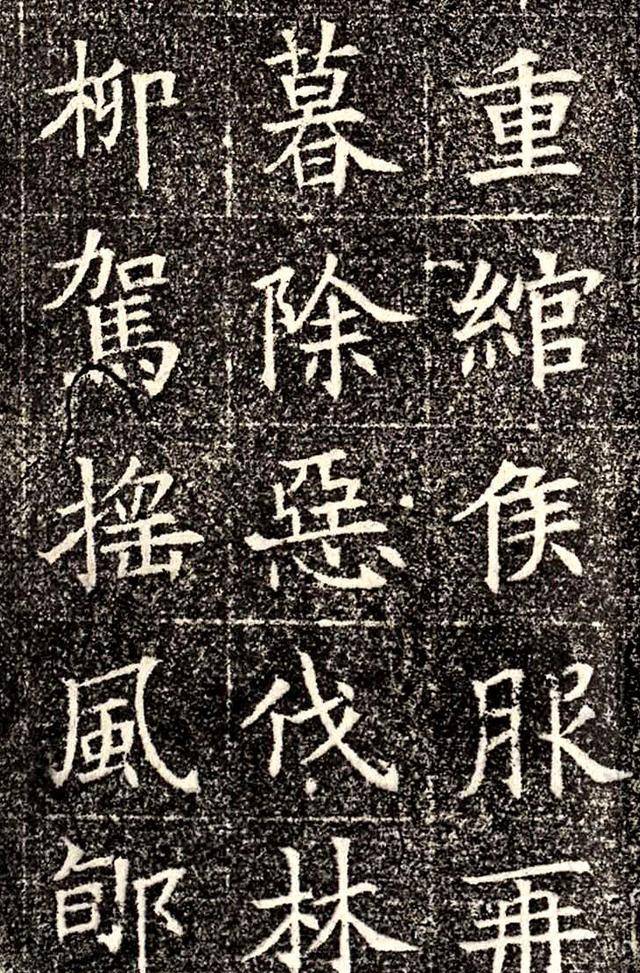 重綰侯服再
暮除惡伐林
柳駕搖風郇